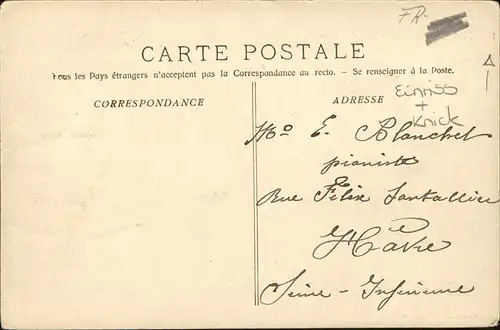 FR-
CARTE POSTALE
Tous les Pays étrangers n'acceptent pas la Correspondance au recto. – Se renseigner à la Poste.
CORRESPONDANCE
ADRESSE
Einriss
+
Knick
E. Blanchet
pianiste
Rue Félix Santallier
Hâvre
Seine - Inférieure